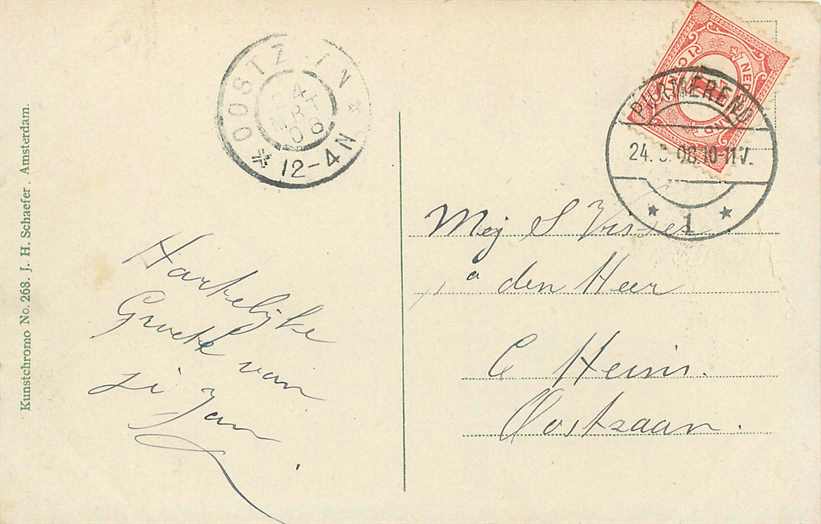 Kunstchromo No. 268. J. H. Schaefer. Amsterdam.
OOSTZ
12-4N
PURMEREND
24. 08.10-11V.
1
Hartelijke
Groete van
Jan
Mej S Visser
a den Heer
C Heinis.
Oostzaan.